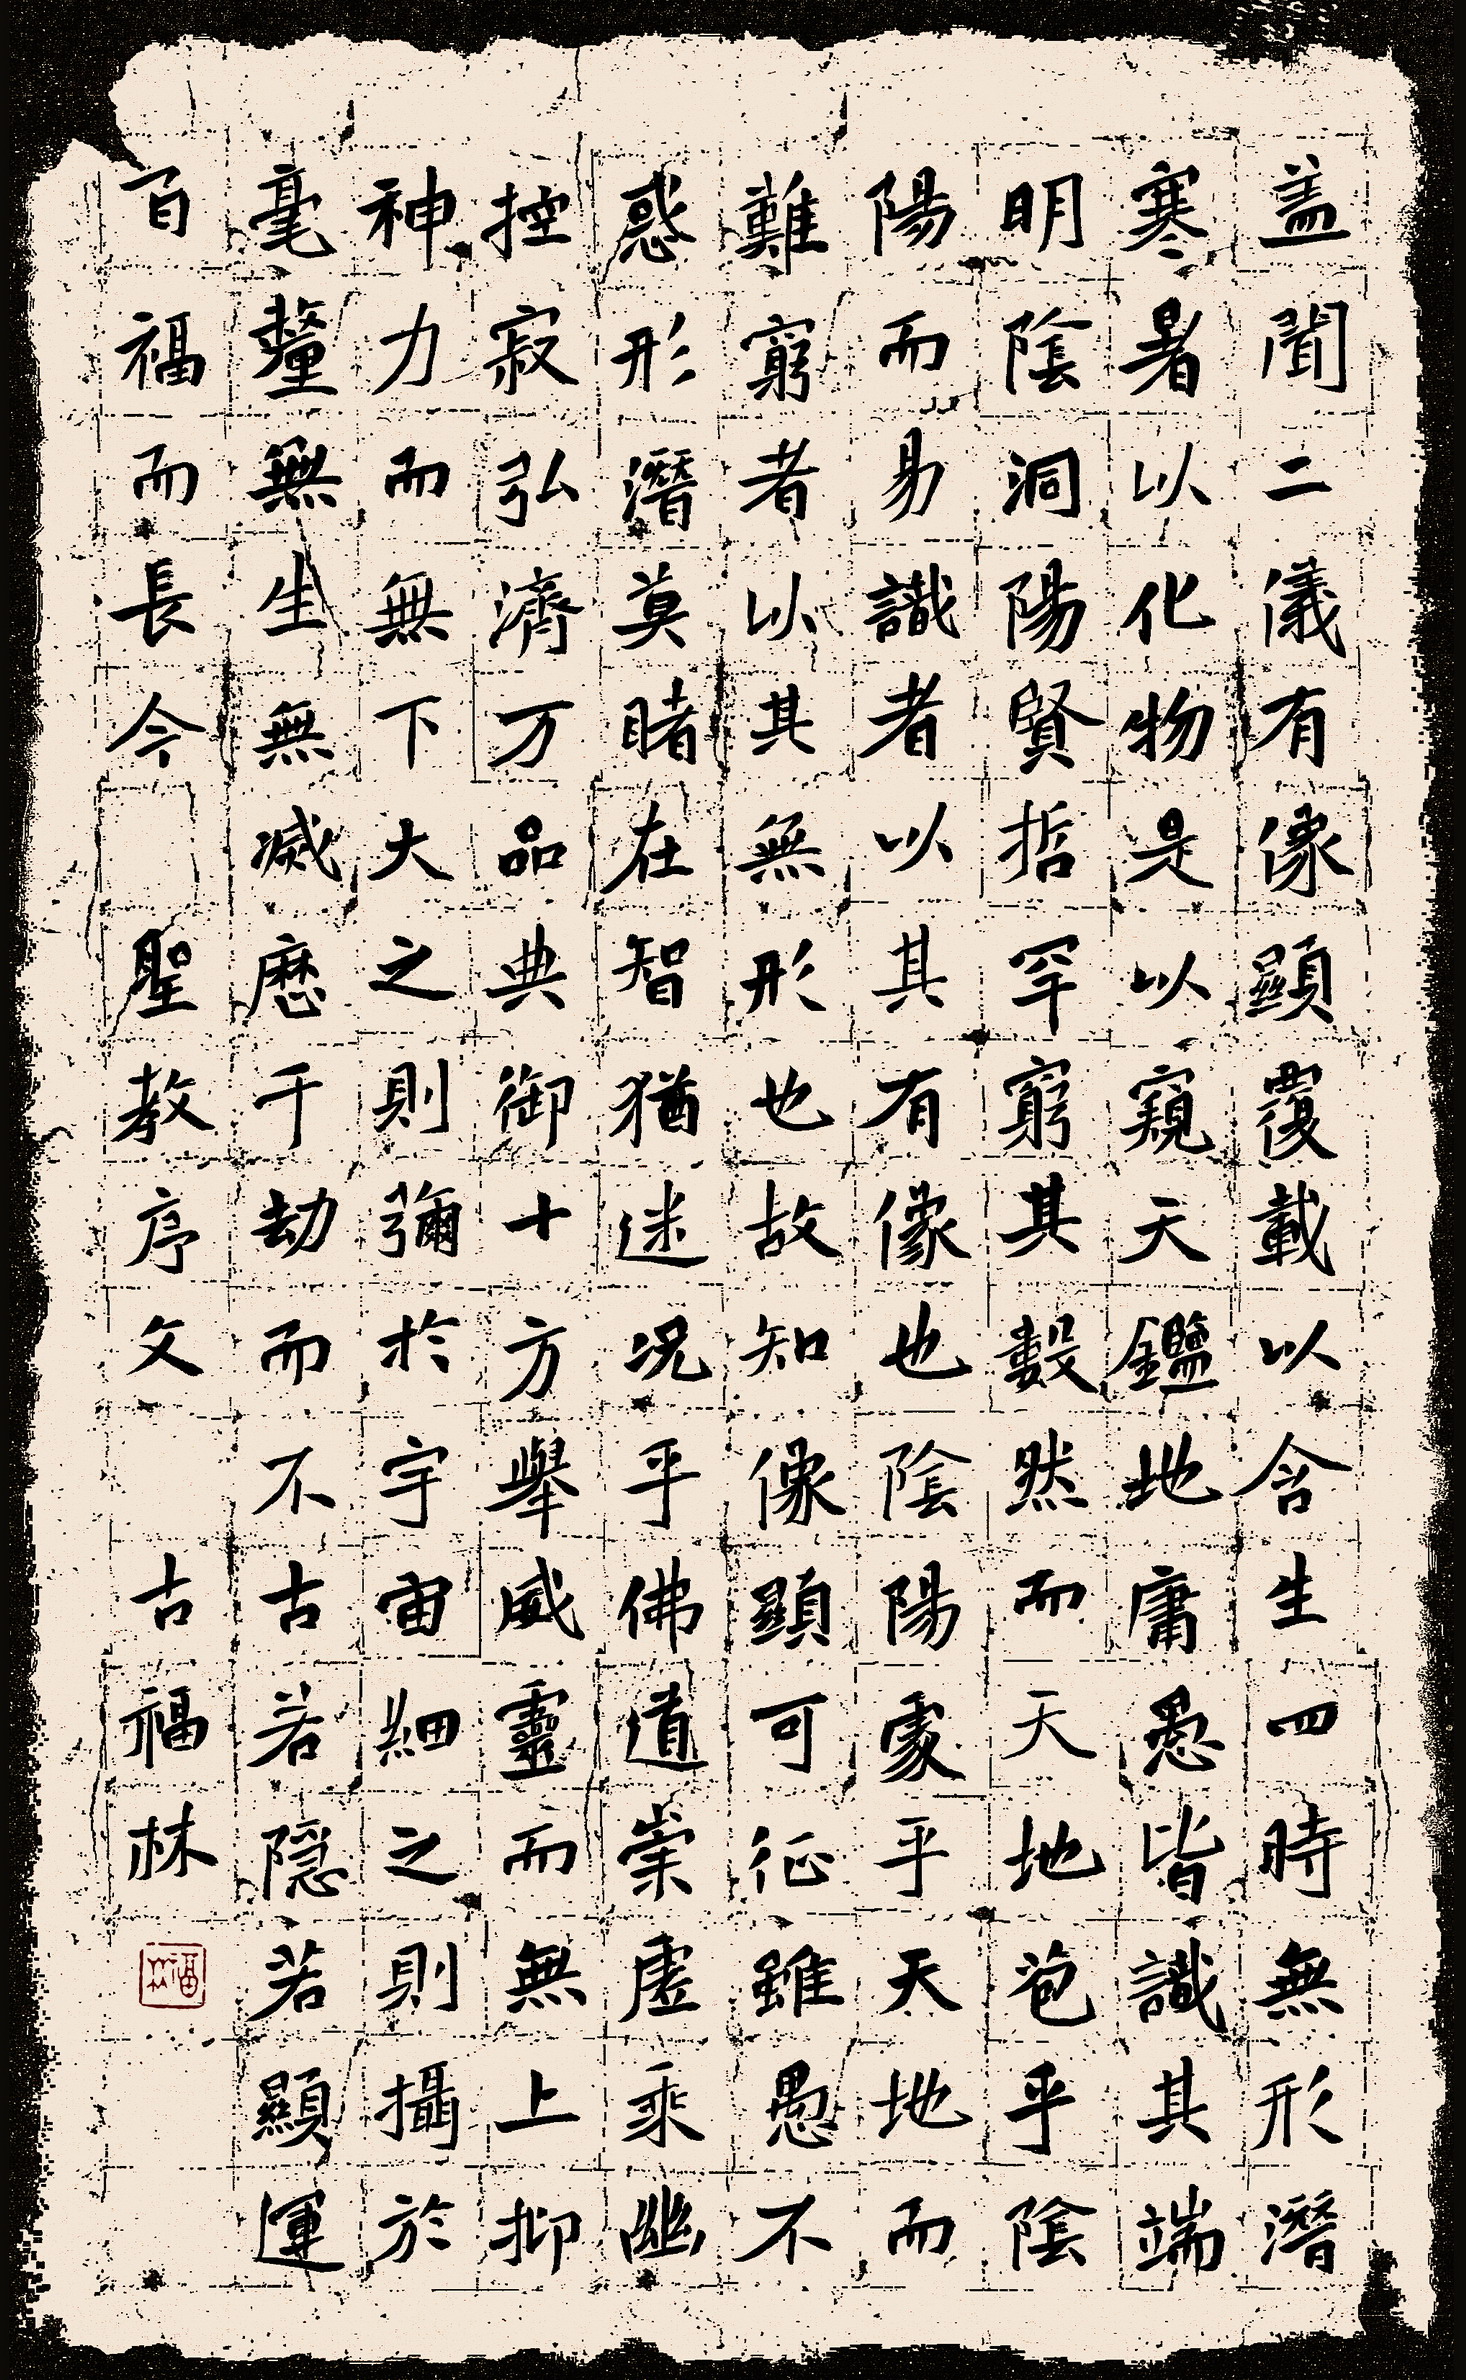 盖聞二儀有像顯覆載以含生四時無形潛
寒暑以化物是以窺天鑑地庸愚皆識其端
明陰洞陽賢哲罕窮其數然而天地苞乎陰
陽而易識者以其有像也陰陽處乎天地而
難窮者以其無形也故知像顯可征雖愚不
惑形潛莫睹在智猶迷况乎佛道崇虛乘幽
控寂弘濟万品典御十方舉威靈而無上抑
神力而無下大之則彌於宇宙細之則攝於
毫釐無生無滅歷千劫而不古若隱若顯運
百福而長今 聖教序文 古福林
福林